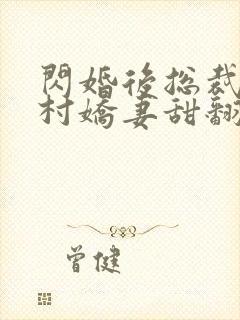 閃婚後總裁
村嬌妻甜翻
曾健